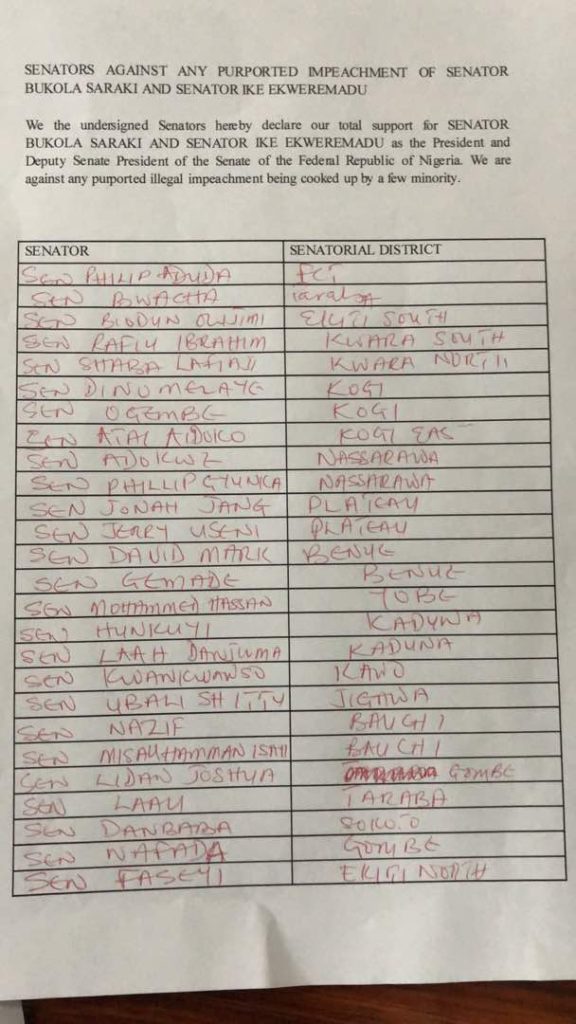 SENATORS AGAINST ANY PURPORTED IMPEACHMENT OF SENATOR
BUKOLA SARAKI AND SENATOR IKE EKWEREMADU
We the undersigned Senators hereby declare our total support for SENATOR
BUKOLA SARAKI AND SENATOR IKE EKWEREMADU as the President and
Deputy Senate President of the Senate of the Federal Republic of Nigeria. We are
against any purported illegal impeachment being cooked up by a few minority.
SENATOR SENATORIAL DISTRICT
SEN PHILIP ADUDA FCT
SEN BWACHA Taraba
SEN BIODUN OLUJIMI EKITI SOUTH
SEN RAFIU IBRAHIM KWARA SOUTH
SEN SHABA LAFIAJI KWARA NORTH
SEN DINO MELAYE KOGI
SEN OGEMBE KOGI
SEN ATAI AIDOKO KOGI EAST
SEN ADOKWE NASSARAWA
SEN PHILLIP GYUNKA NASSARAWA
SEN JONAH JANG PLATEAU
SEN JERRY USENI PLATEAU
SEN DAVID MARK BENUE
SEN GEMADE BENUE
SEN MOHAMMED HASSAN YOBE
SEN HUNKUYI KADUNA
SEN LAAH DANJUMA KADUNA
SEN KWANKWANSO KANO
SEN UBALI SHITTU JIGAWA
SEN NAZIF BAUCHI
SEN MISAU HAMMAN ISAH BAUCHI
SEN LIDAN JOSHUA GOMBE
SEN LAAU TARABA
SEN DANBABA SOKOTO
SEN NAFADA GOMBE
SEN FASEYI EKITI NORTH